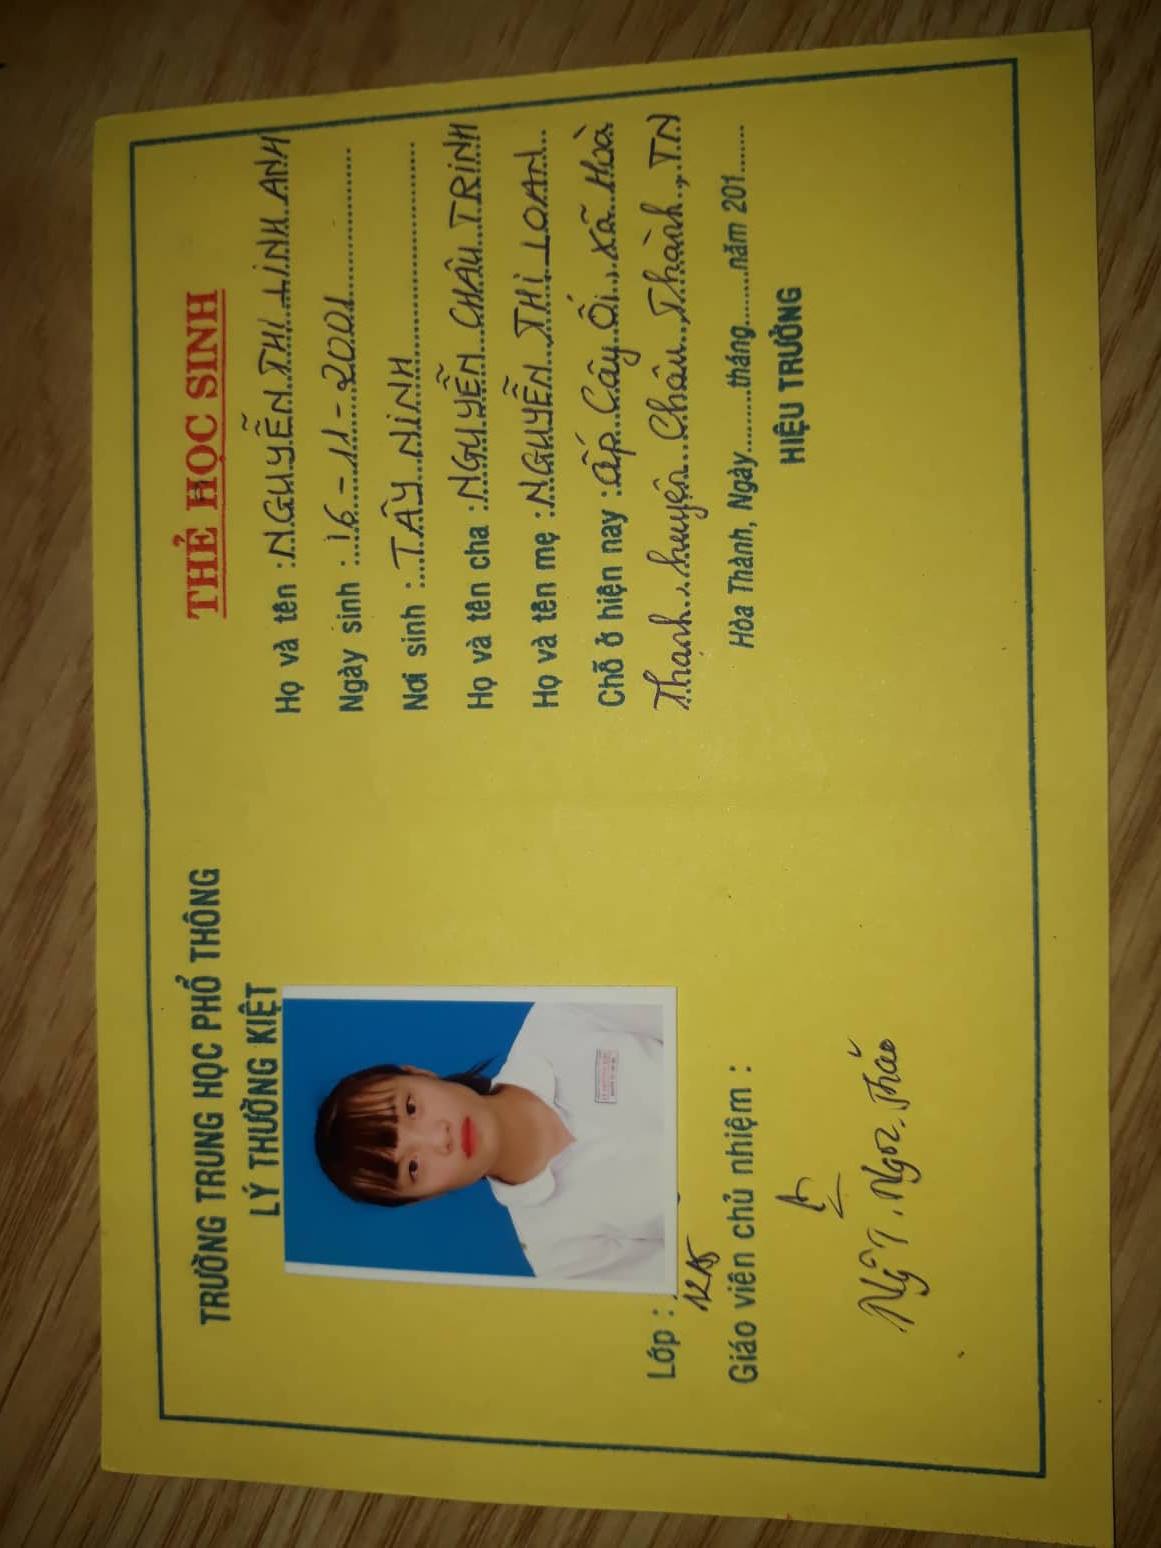 TRƯỜNG TRUNG HỌC PHỔ THÔNG
LÝ THƯỜNG KIỆT
Lớp :
12A5
Giáo viên chủ nhiệm :
Ngô T. Ngọc Thảo
THẺ HỌC SINH
Họ và tên : NGUYỄN THỊ LINH ANH
Ngày sinh : 16 - 11 - 2001
Nơi sinh : TÂY NINH
Họ và tên cha : NGUYỄN CHÂU TRINH
Họ và tên mẹ : NGUYỄN THỊ LOAN
Chỗ ở hiện nay : ấp Cây Ổi, xã Hoà
Thạnh, huyện Châu Thành, TN
Hòa Thành, Ngày.........tháng.........năm 201.......
HIỆU TRƯỞNG